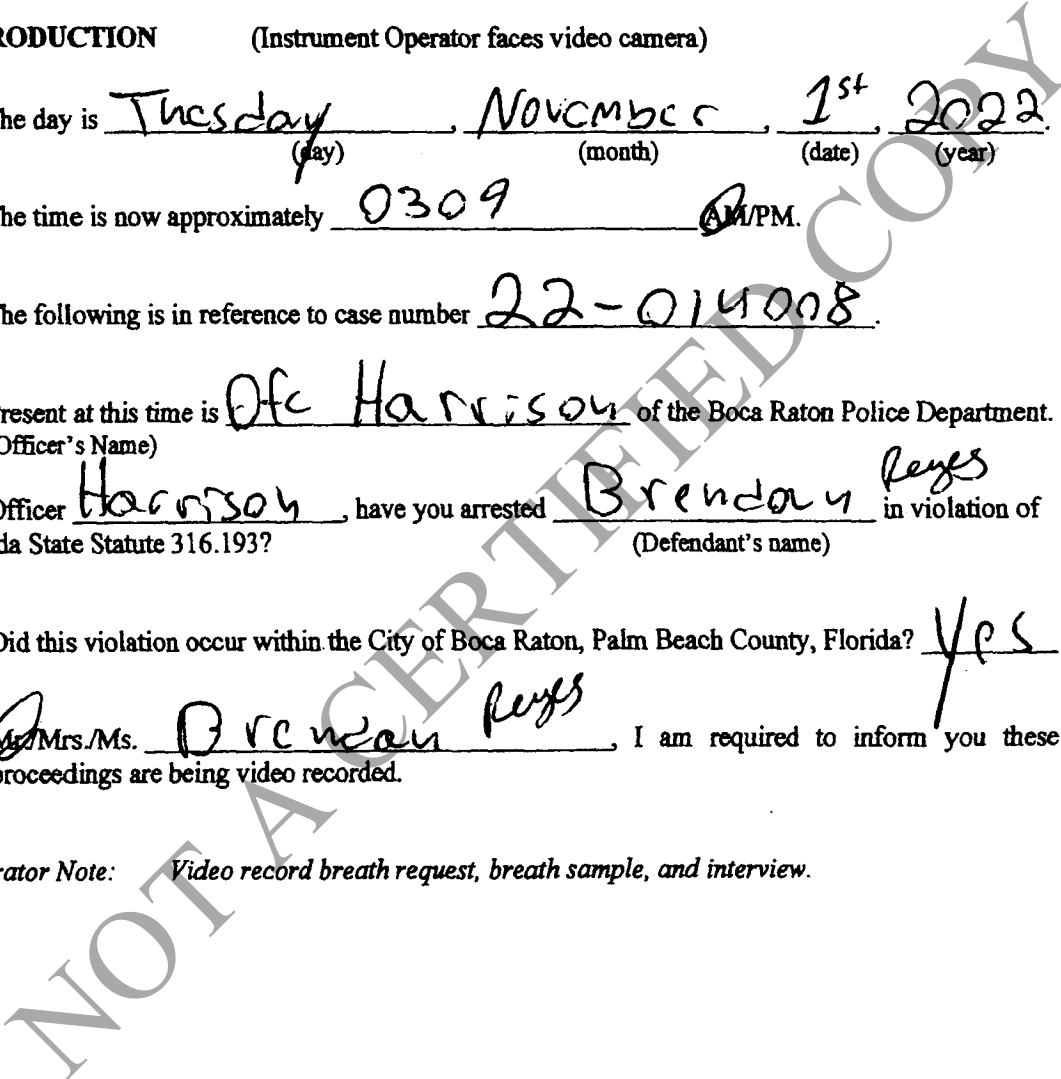 RODUCTION (Instrument Operator faces video camera)
he day is Tuesday, November, 1st, 2022.
(day) (month) (date) (year)
he time is now approximately 0309 AM/PM.
he following is in reference to case number 22-014008.
resent at this time is Ofc Harrison of the Boca Raton Police Department.
Officer's Name)
Reyes
Officer Harrison, have you arrested Brendan in violation of
da State Statute 316.193? (Defendant's name)
Did this violation occur within the City of Boca Raton, Palm Beach County, Florida? Yes
Reyes
Mr./Mrs./Ms. Brendan, I am required to inform you these
proceedings are being video recorded.
rator Note: Video record breath request, breath sample, and interview.
NOT A CERTIFIED COPY